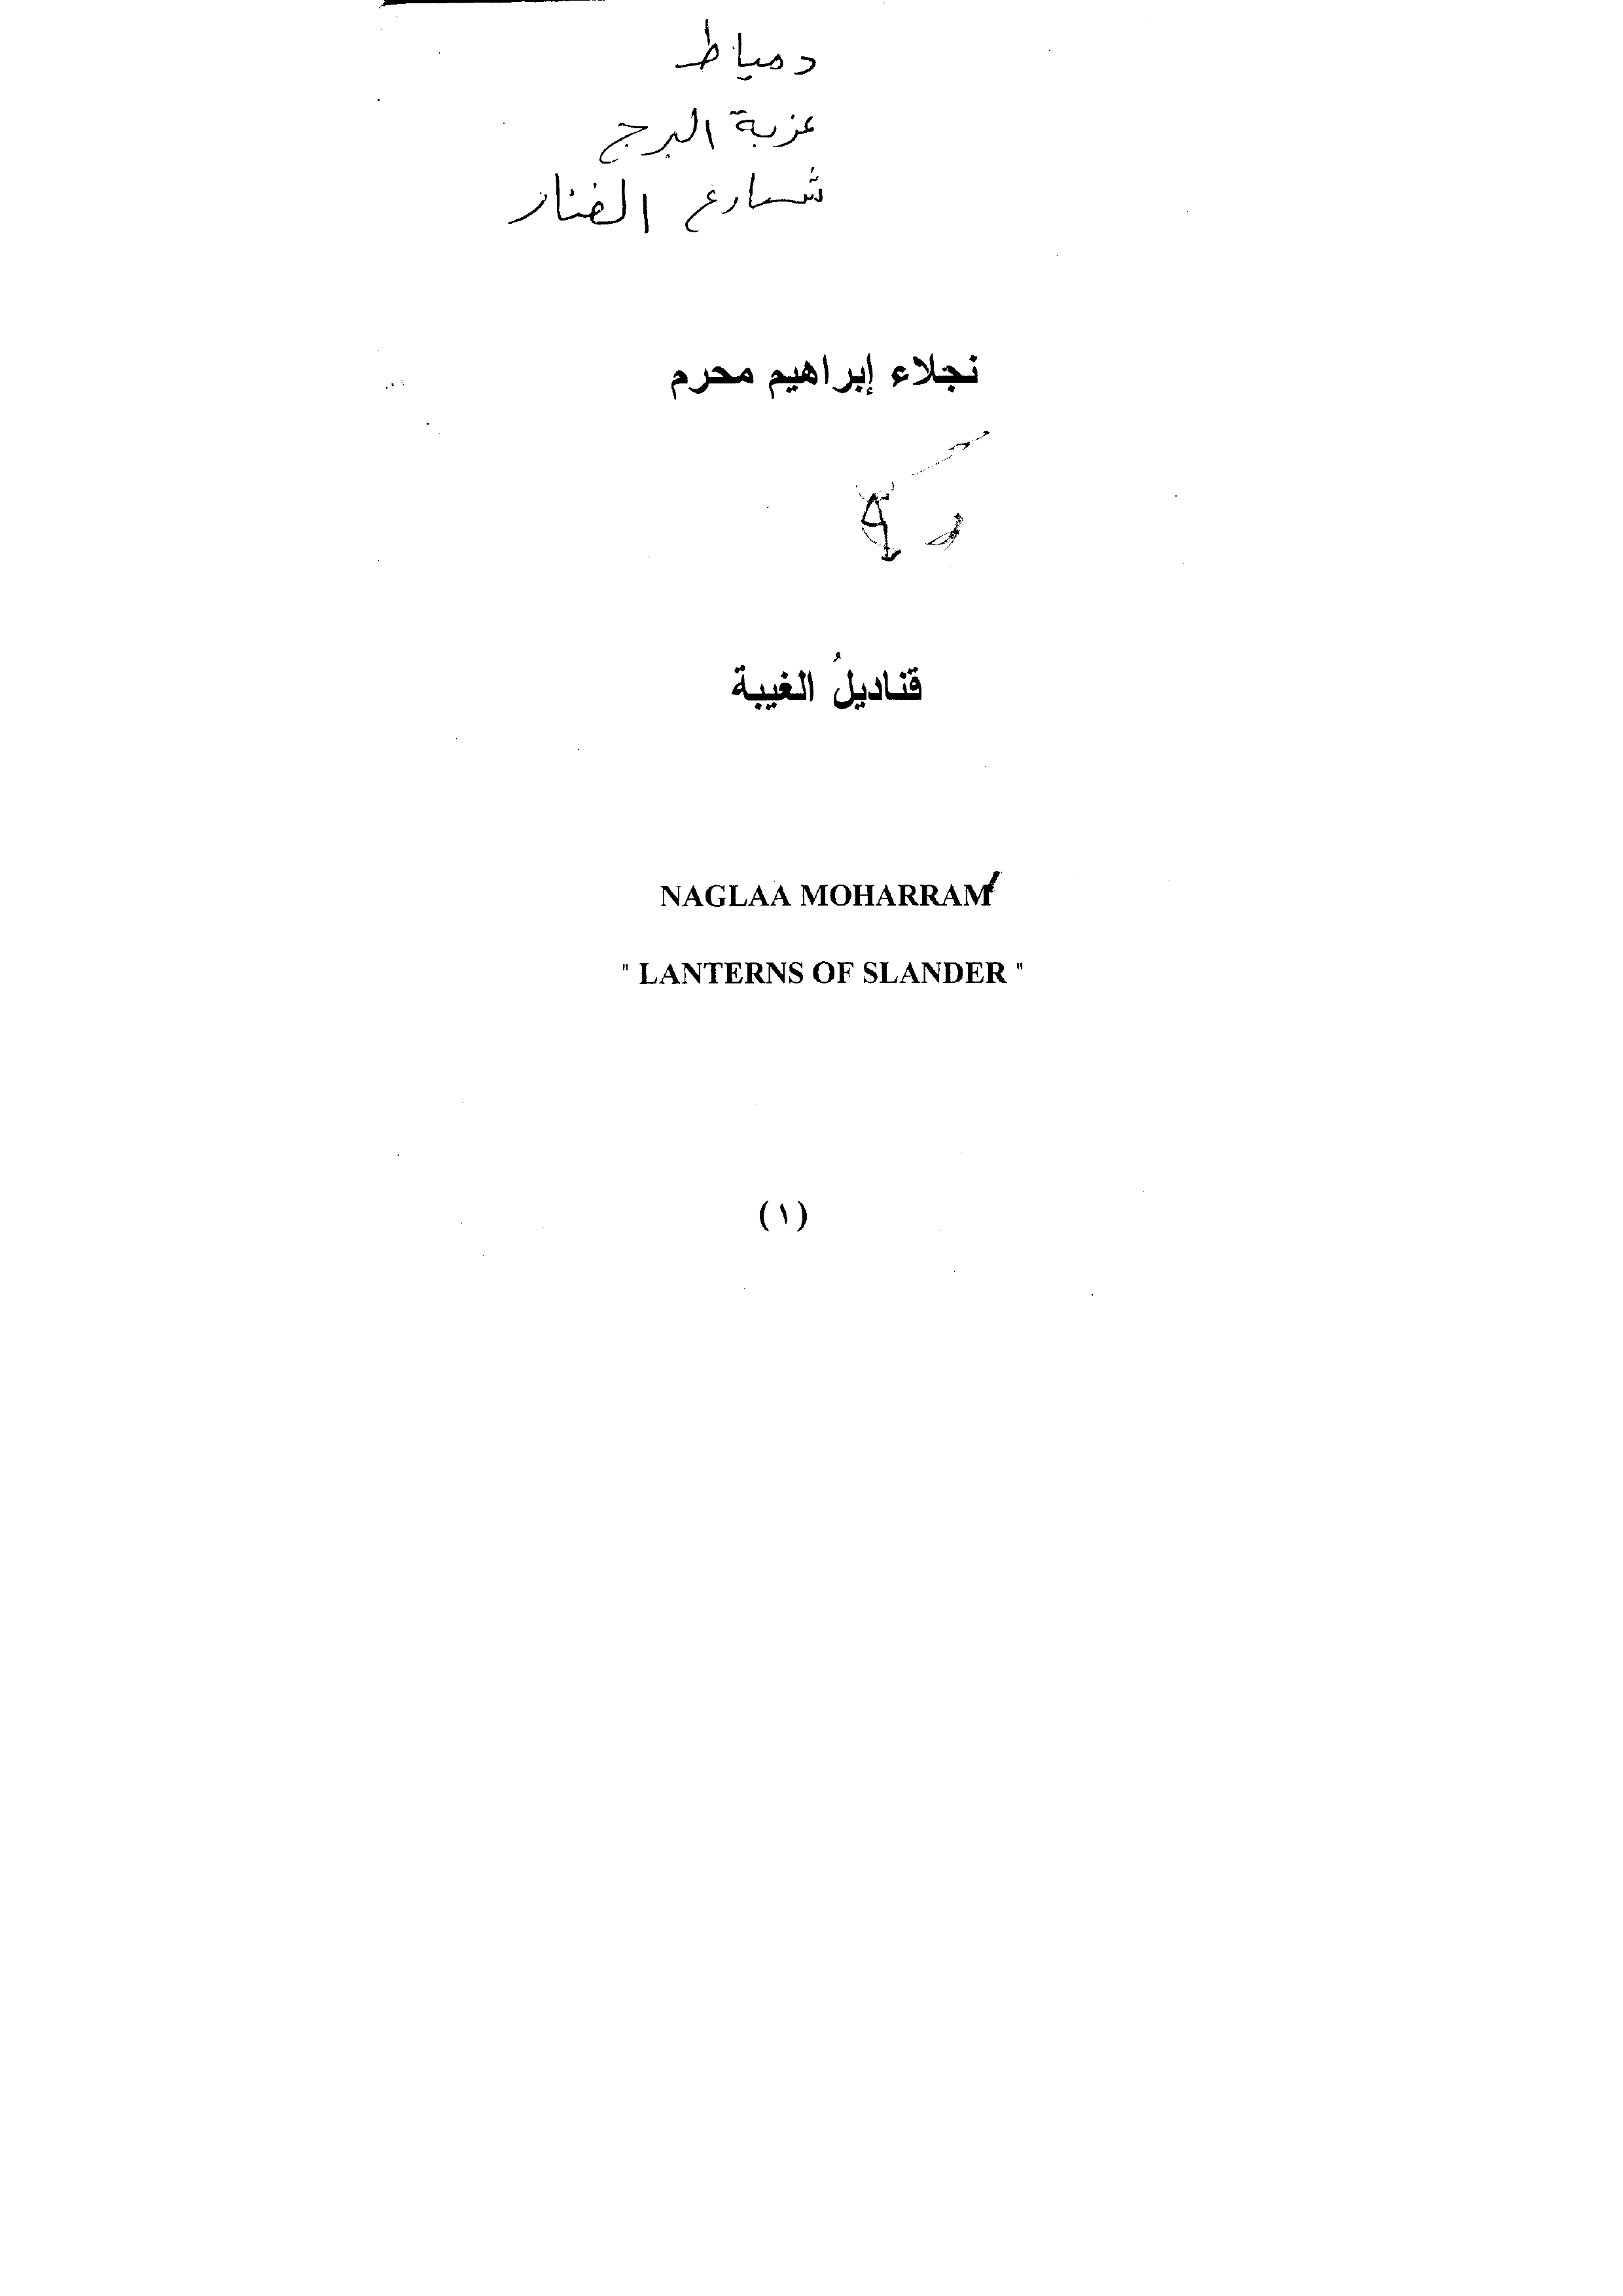 دمياط
عزبة البرج
شارع الفنار
نجلاء إبراهيم محرم
قناديلُ الغيبة
NAGLAA MOHARRAM
" LANTERNS OF SLANDER "
(١)